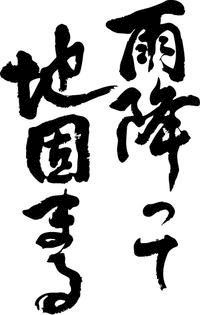 雨降って
地固まる